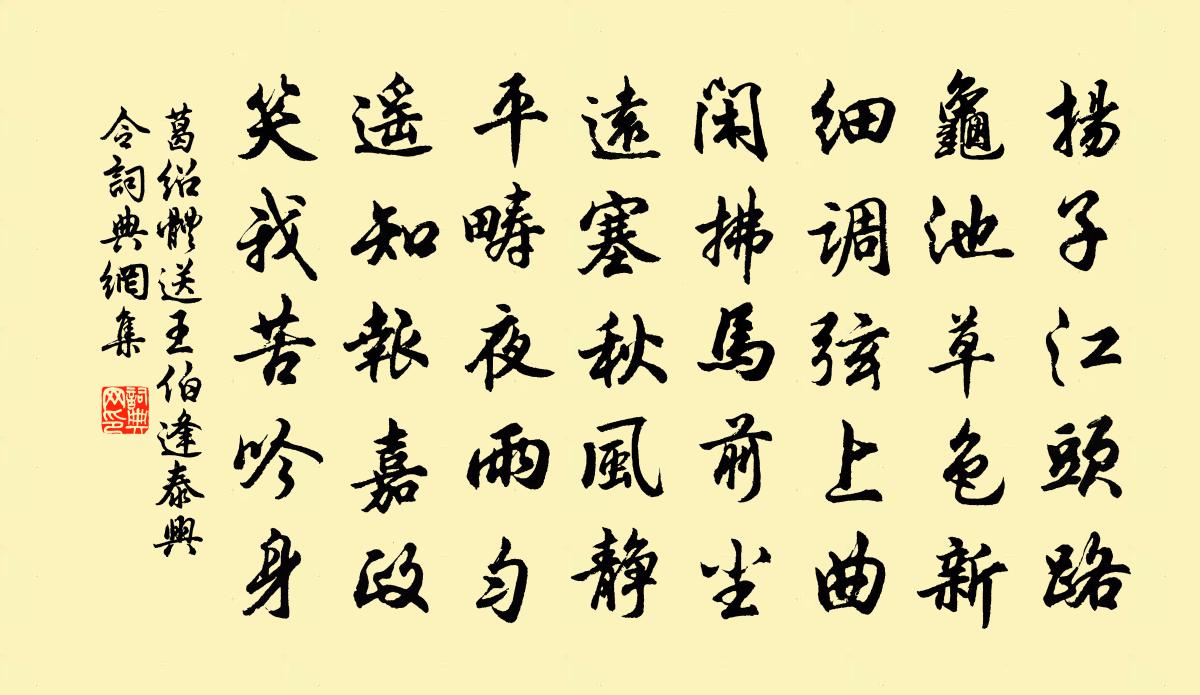 揚子江頭路
龜池草色新
细调弦上曲
闲拂馬前尘
遠塞秋風静
平疇夜雨匀
遥知報嘉政
笑我苦吟身
葛绍體送王伯逢泰興
令詞典網集
詞典
网印